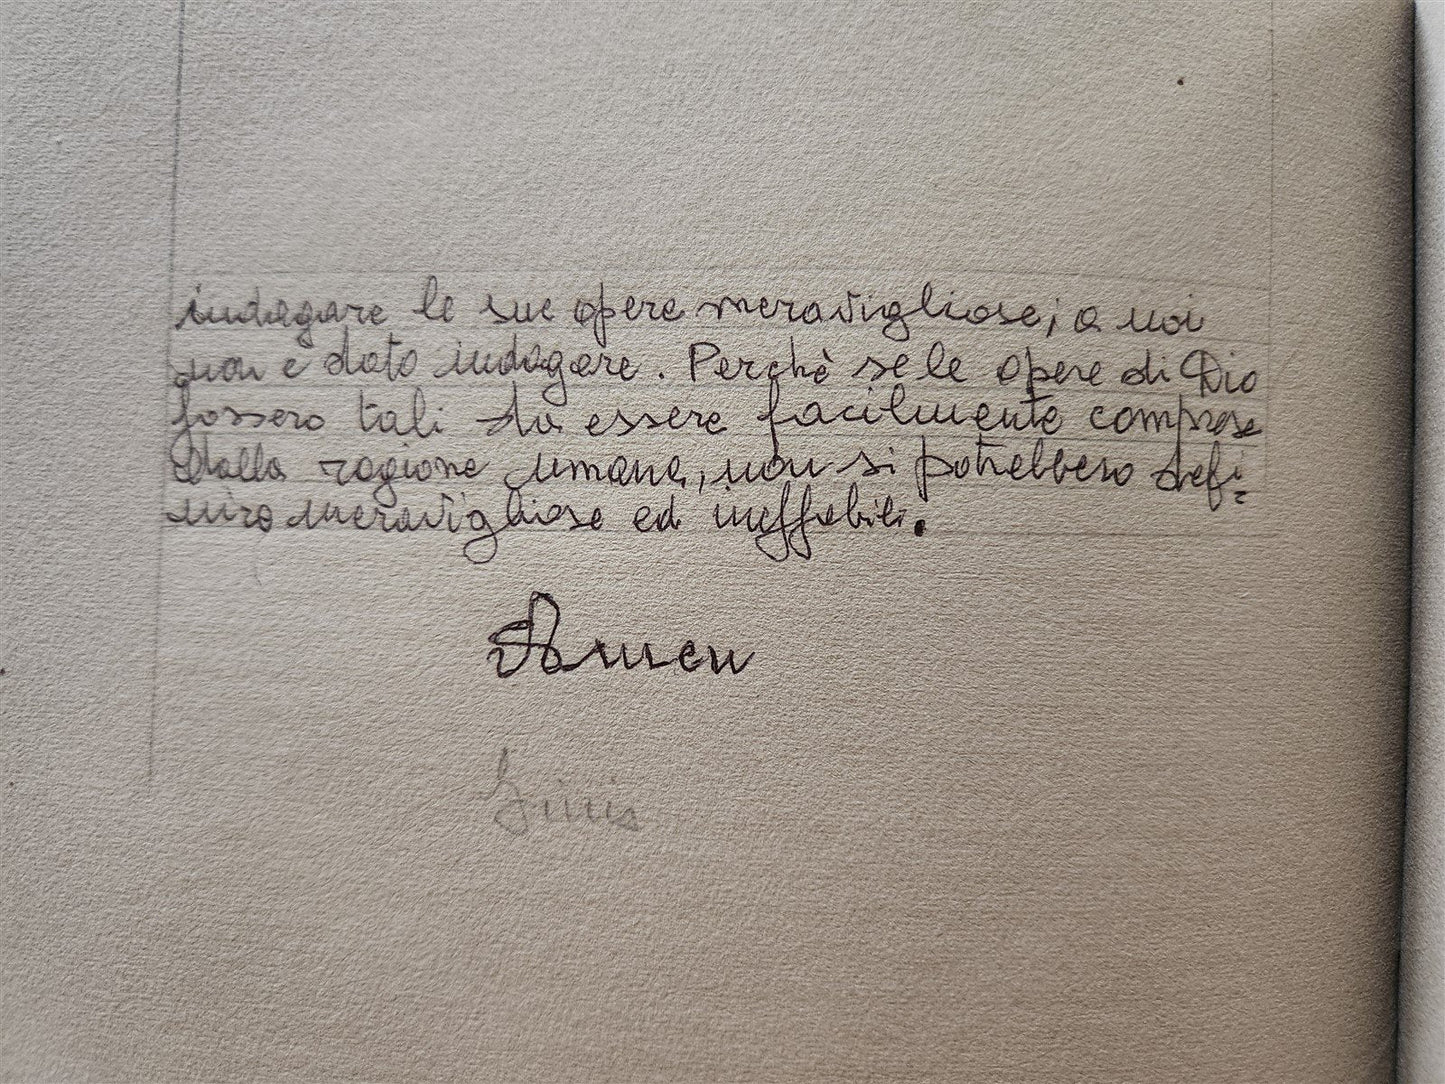 indagare le sue opere meravigliose; a noi
non e dato indagare. Perchè se le opere di Dio
fossero tali da essere facilmente comprese
dalla ragione umana, non si potrebbero defi=
nire meravigliose ed ineffabili.
Amen
Finis